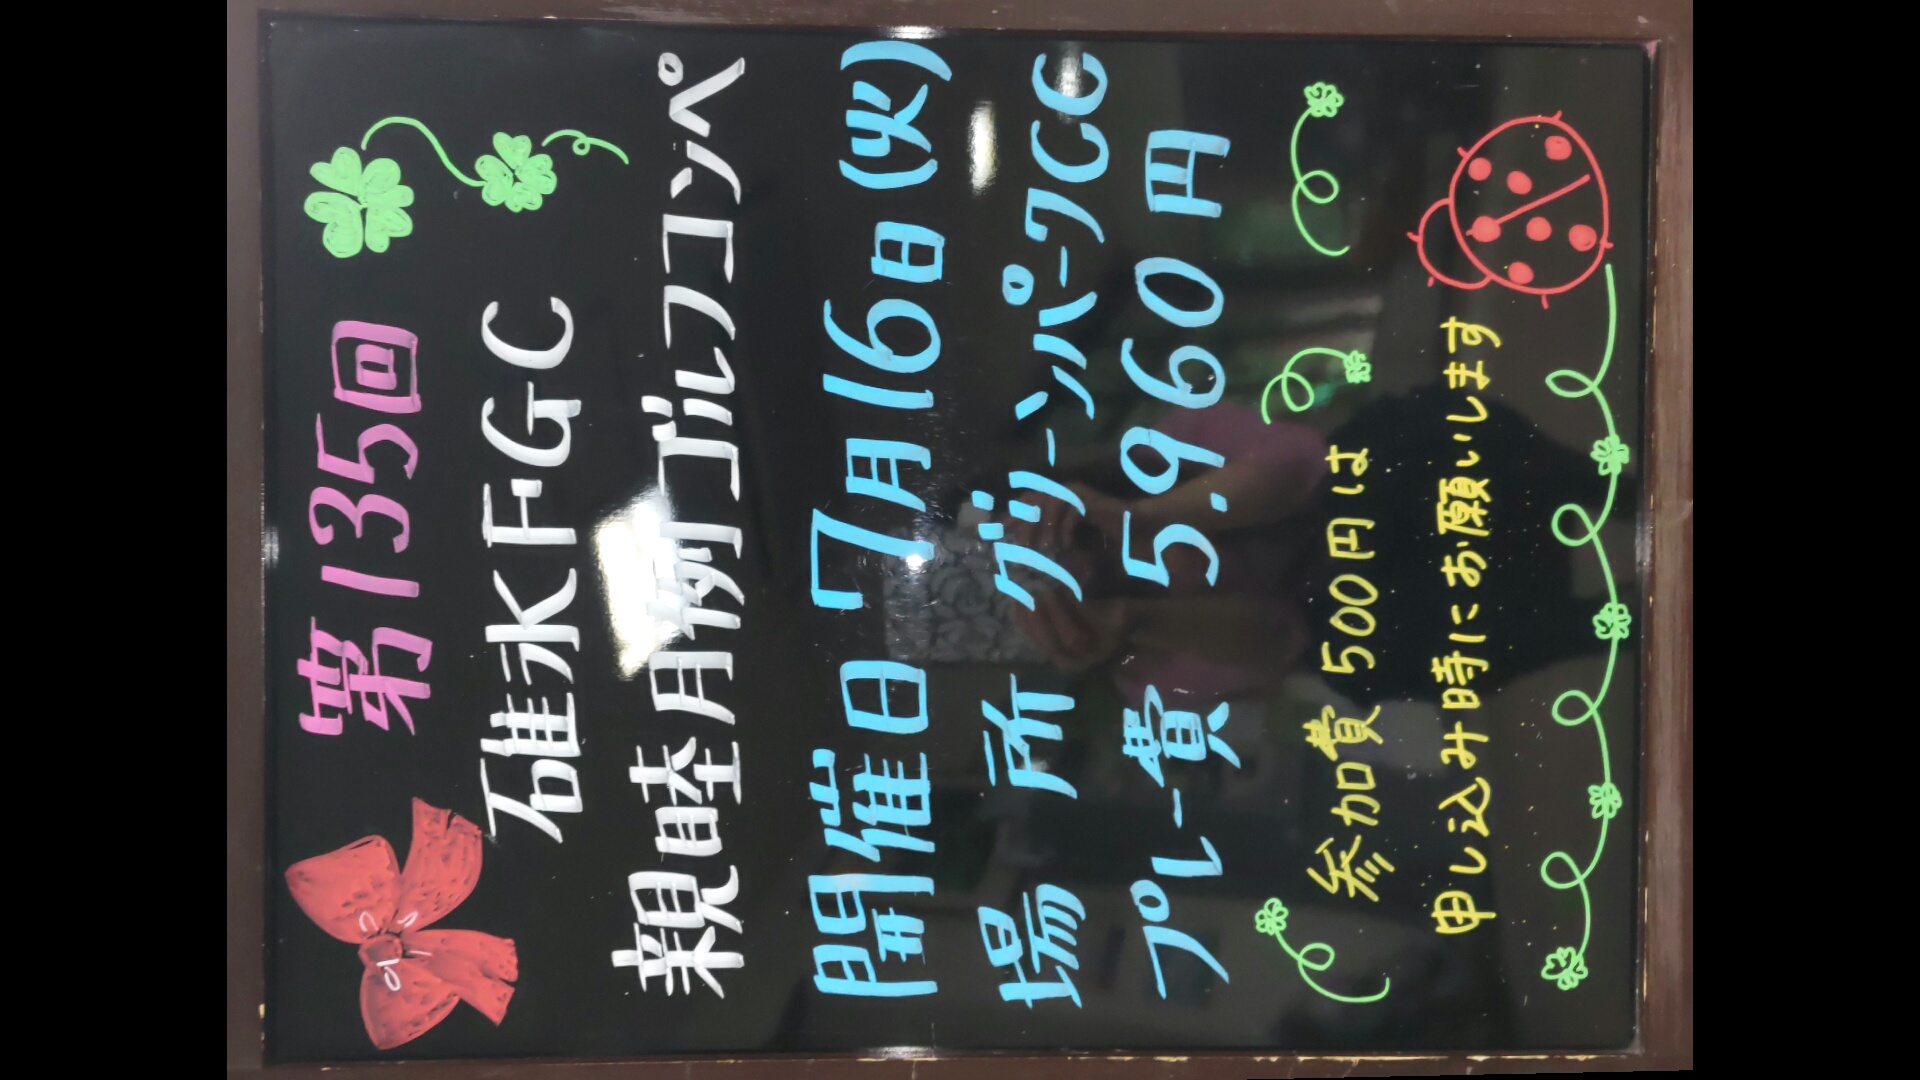 第135回
碓氷FGC
親睦月例ゴルフコンペ
開催日 7月16日(火)
場所 グリーンパークCC
プレー費 5.960円
参加費 500円は
申し込み時にお願いします